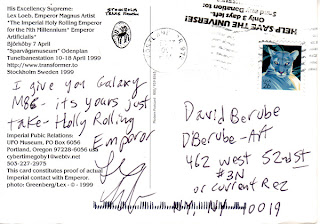 His Excellency Supreme:
Lex Loeb, Emperor Magnus Artist
"The Imperial Holy Rolling Emperor
for the Nth Millennium" Emperor
Artificialis"
Björksby 7 April
"Sparvägsmuseum" Odenplan
Tunelbanestation 10-18 April 1999
http://www.transformer.to
Stockholm Sweden 1999
I give you Galaxy
M86 - its yours just
take - Holly Rolling
Emperor
Imperial Pubic Relations
UFO Museum, PO Box 6056
Portland, Oregon 97228-6056 usa
cybertimegolly1@webtv.net
503-227-2975
This card constitutes proof of actual
Imperial contact with Emperor
photo: Greenberg/Lex - © 1999
HELP SAVE THE UNIVERSE!
Only 3 days left.
Send Donation to:
David Berube
DBerube - Art
462 West 52nd St
#3N
or current Rez
NY, NY 10019